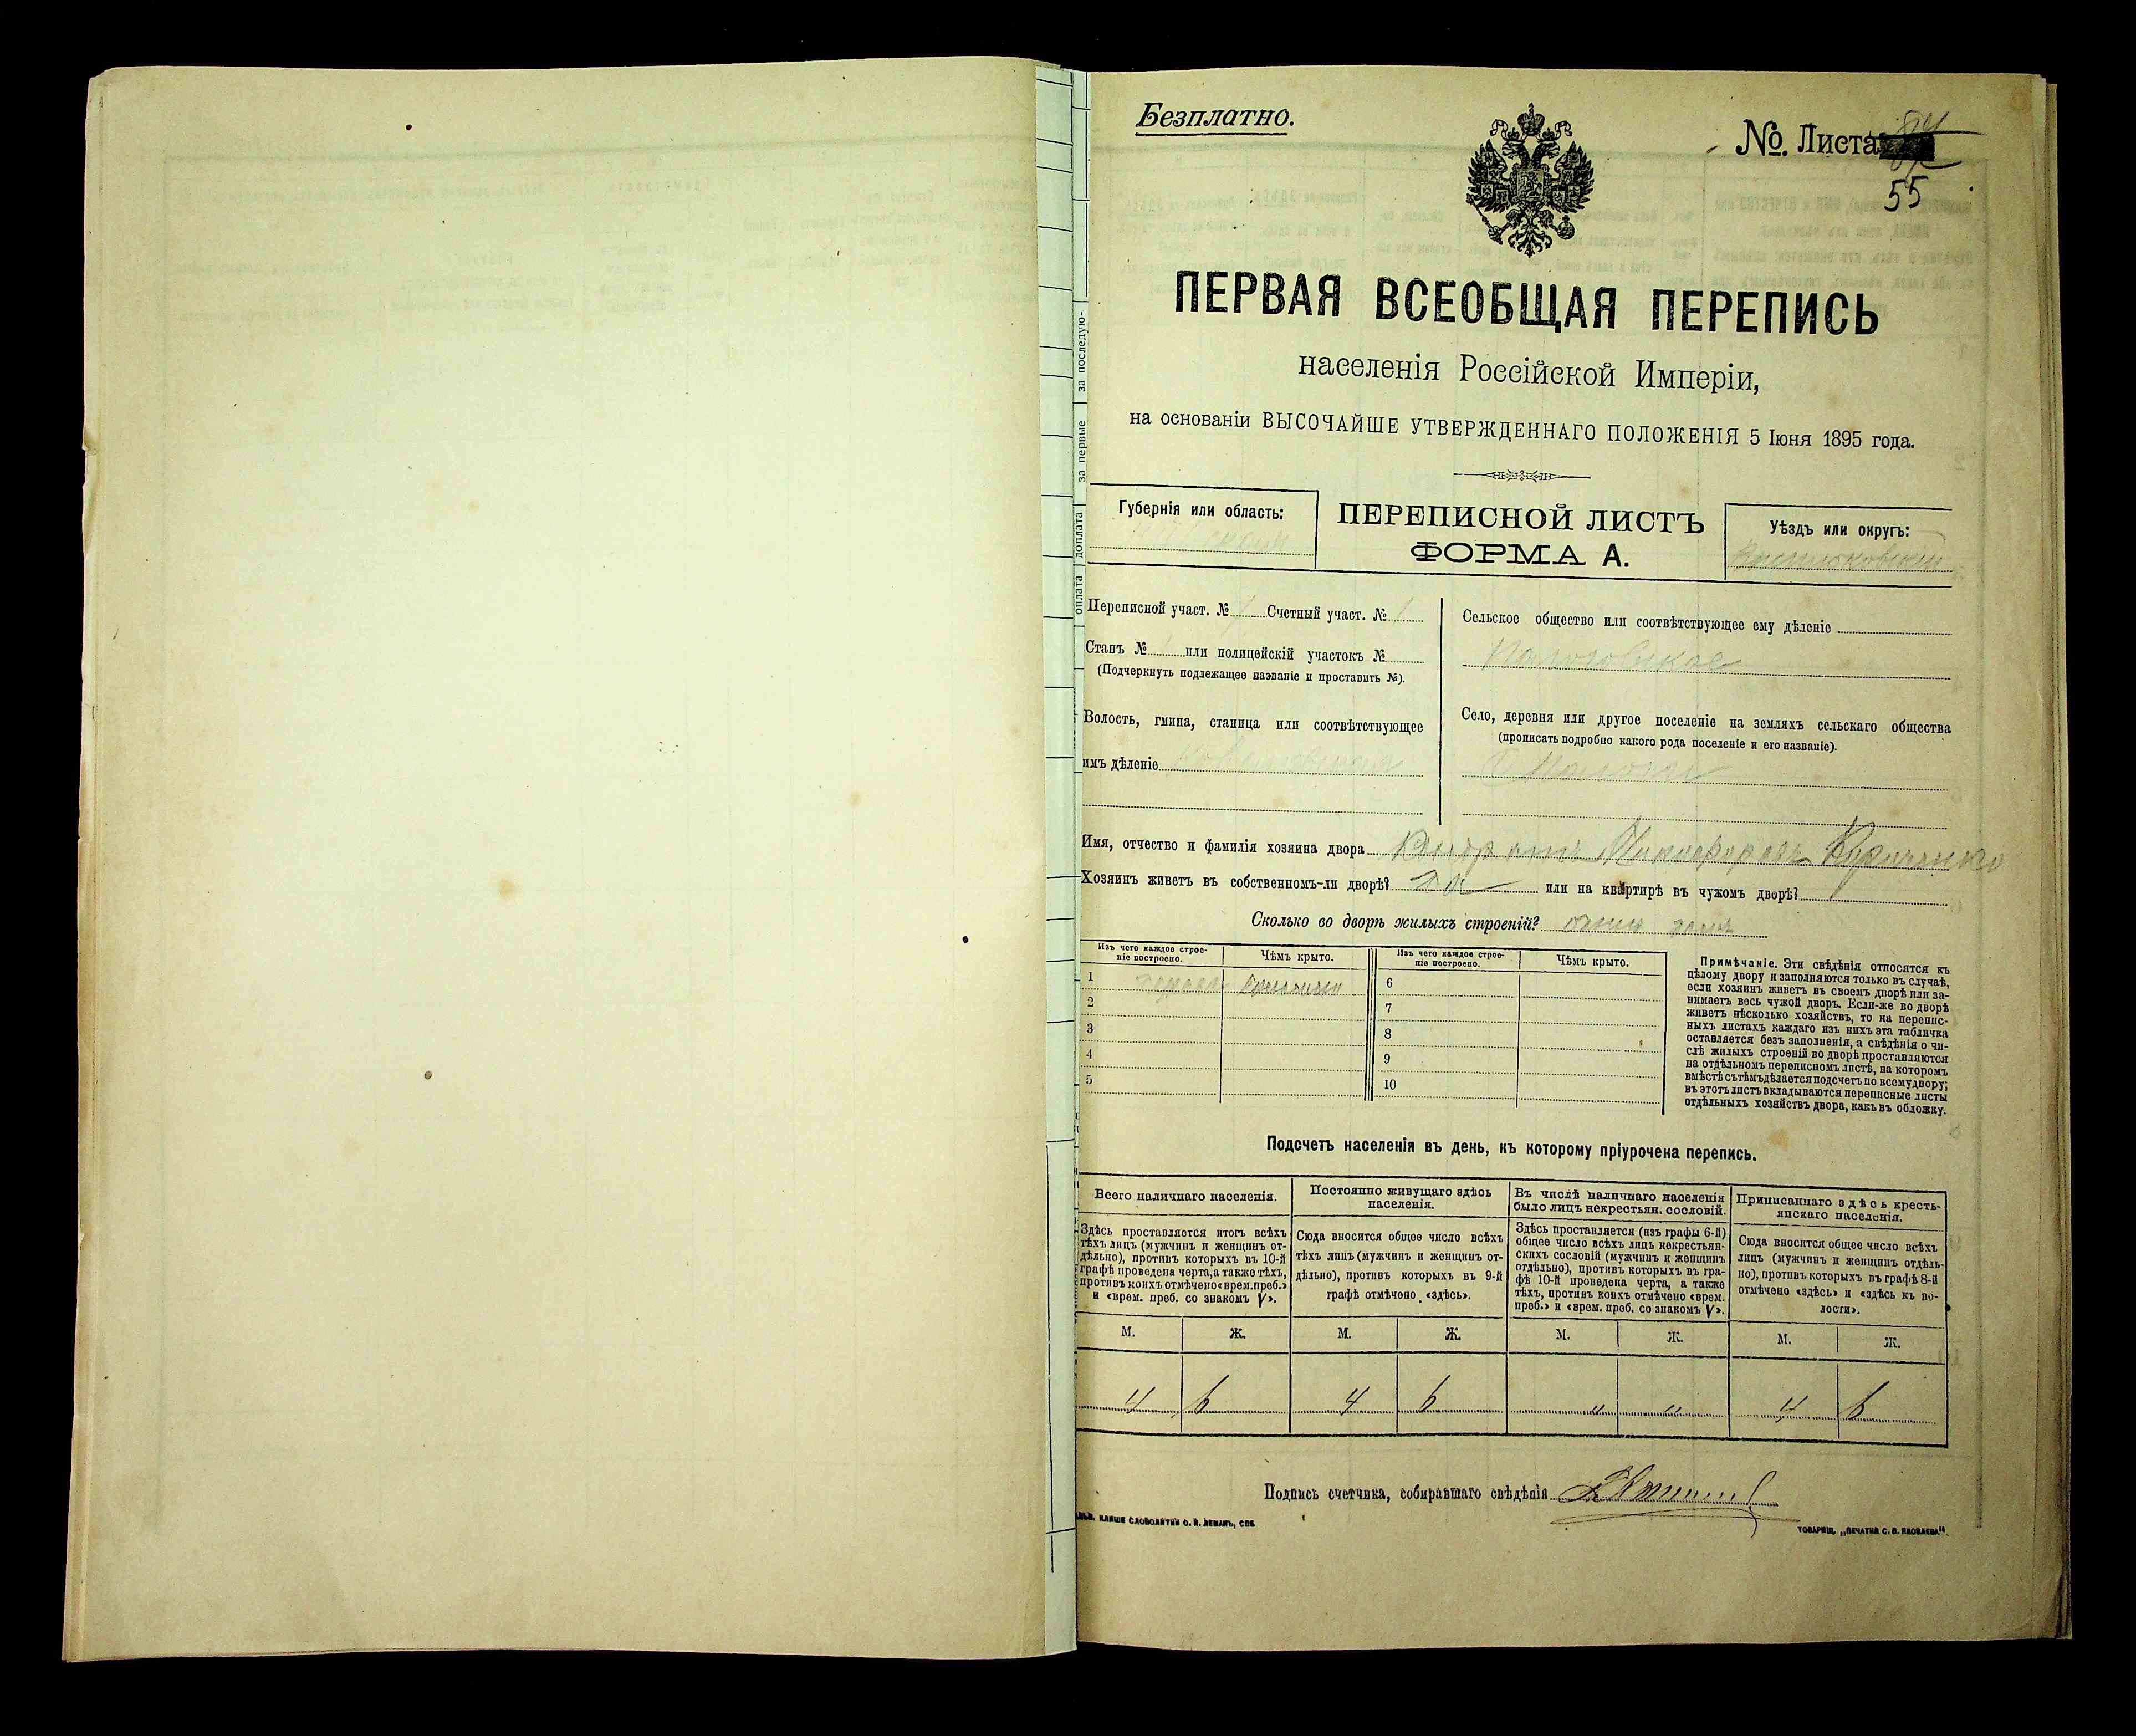 Безплатно.
№. Листа
55
ПЕРВАЯ ВСЕОБЩАЯ ПЕРЕПИСЬ
населенія Россійской Имперіи,
на основаніи ВЫСОЧАЙШЕ УТВЕРЖДЕННАГО ПОЛОЖЕНІЯ 5 Іюня 1895 года.
Губернія или область:
ПЕРЕПИСНОЙ ЛИСТЪ
ФОРМА А.
Уѣздъ или округъ:
Переписной участ. № 1 Счетный участ. № 1
Станъ № или полицейскій участокъ №
(Подчеркнуть подлежащее названіе и проставить №).
Волость, гмина, станица или соотвѣтствующее
имъ дѣленіе
Сельское общество или соотвѣтствующее ему дѣленіе
Село, деревня или другое поселеніе на земляхъ сельскаго общества
(прописать подробно какого рода поселеніе и его названіе).
Имя, отчество и фамилія хозяина двора
Хозяинъ живетъ въ собственномъ-ли дворѣ? да или на квартирѣ въ чужомъ дворѣ?
Сколько во дворѣ жилыхъ строеній? одинъ домъ
Изъ чего каждое строе-
ніе построено.
Чѣмъ крыто.
Изъ чего каждое строе-
ніе построено.
Чѣмъ крыто.
1
2
3
4
5
6
7
8
9
10
Примѣчаніе. Эти свѣдѣнія относятся къ
цѣлому двору и заполняются только въ случаѣ,
если хозяинъ живетъ въ своемъ дворѣ или за-
нимаетъ весь чужой дворъ. Если-же во дворѣ
живетъ нѣсколько хозяйствъ, то на перепис-
ныхъ листахъ каждаго изъ нихъ эта табличка
оставляется безъ заполненія, а свѣдѣнія о чи-
слѣ жилыхъ строеній во дворѣ проставляются
на отдѣльномъ переписномъ листѣ, на которомъ
вмѣстѣ съ тѣмъ дѣлается подсчетъ по всему двору;
въ этотъ листъ вкладываются переписные листы
отдѣльныхъ хозяйствъ двора, какъ въ обложку.
Подсчетъ населенія въ день, къ которому пріурочена перепись.
Всего наличнаго населенія.
Здѣсь проставляется итогъ всѣхъ
тѣхъ лицъ (мужчинъ и женщинъ от-
дѣльно), противъ которыхъ въ 10-й
графѣ проведена черта, а также тѣхъ,
противъ коихъ отмѣчено «врем. преб.»
и «врем. преб. со знакомъ V».
Постоянно живущаго здѣсь
населенія.
Сюда вносится общее число всѣхъ
тѣхъ лицъ (мужчинъ и женщинъ от-
дѣльно), противъ которыхъ въ 9-й
графѣ отмѣчено «здѣсь».
Въ числѣ наличнаго населенія
было лицъ некрестьян. сословій.
Здѣсь проставляется (изъ графы 6-й)
общее число всѣхъ лицъ некрестьян-
скихъ сословій (мужчинъ и женщинъ
отдѣльно), противъ которыхъ въ гра-
фѣ 10-й проведена черта, а также
тѣхъ, противъ коихъ отмѣчено «врем.
преб.» и «врем. преб. со знакомъ V».
Приписаннаго здѣсь кресть-
янскаго населенія.
Сюда вносится общее число всѣхъ
лицъ (мужчинъ и женщинъ отдѣль-
но), противъ которыхъ въ графѣ 8-й
отмѣчено «здѣсь» и «здѣсь къ во-
лости».
М. Ж. М. Ж. М. Ж. М. Ж.
4 6 4 6 „ „ 4 6
Подпись счетчика, собиравшаго свѣдѣнія
КЛИШЕ СЛОВОЛИТНИ О. И. ЛЕМАНЪ, СПБ
ТОВАРИЩ. „ПЕЧАТНЯ С. П. ЯКОВЛЕВА"
за последую-
за первые
доплата
оплата